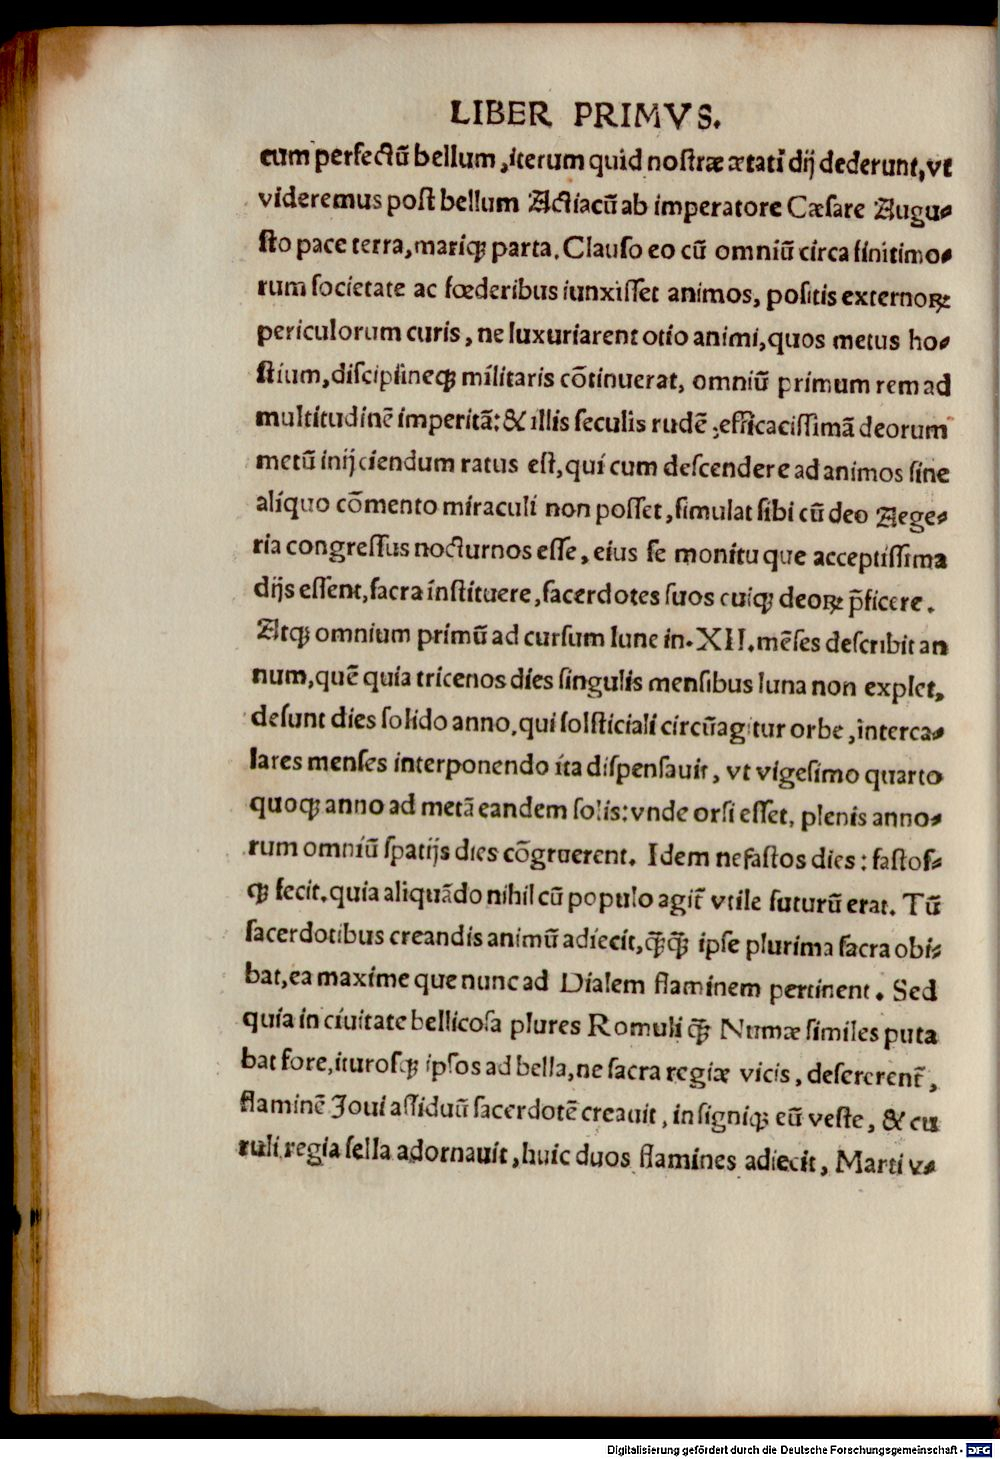 LIBER PRIMVS.
cum perfectū bellum, iterum quid nostræ ætati dij dederunt, vt
videremus post bellum Actiacū ab imperatore Cæsare Augu⸗
sto pace terra, mariq; parta. Clauso eo cū omniū circa finitimo⸗
rum societate ac fœderibus iunxisset animos, positis externoꝝ
periculorum curis, ne luxuriarent otio animi, quos metus ho⸗
stium, disciplineq; militaris cōtinuerat, omniū primum rem ad
multitudinē imperitā: & illis seculis rudē: efficacissimā deorum
metū inijciendum ratus est, qui cum descendere ad animos sine
aliquo cōmento miraculi non posset, simulat sibi cū deo Aege⸗
ria congressus nocturnos esse, eius se monitu que acceptissima
dijs essent, sacra instituere, sacerdotes suos cuiq; deoꝝ p̄ficere.
Atq; omnium primū ad cursum lune in. XII. mēses describit an
num, quē quia tricenos dies singulis mensibus luna non explet,
desunt dies solido anno, qui solsticiali circūagitur orbe, interca⸗
lares menses interponendo ita dispensauit, vt vigesimo quarto
quoq; anno ad metā eandem solis: vnde orsi esset, plenis anno⸗
rum omniū spatijs dies cōgruerent. Idem nefastos dies: fastos⸗
q; fecit. quia aliquādo nihil cū populo agit̄ vtile futurū erat. Tū
sacerdotibus creandis animū adiecit, q̄q̄ ipse plurima sacra obi⸗
bat, ea maxime que nunc ad Dialem flaminem pertinent. Sed
quia in ciuitate bellicosa plures Romuli q̄ Numæ similes puta
bat fore, iturosq; ipsos ad bella, ne sacra regiæ vicis, desererent̄,
flaminē Ioui assiduū sacerdotē creauit, insigniq; eū veste, & cu
ruli regia sella adornauit, huic duos flamines adiecit, Marti v⸗
Digitalisierung gefördert durch die Deutsche Forschungsgemeinschaft - DFG